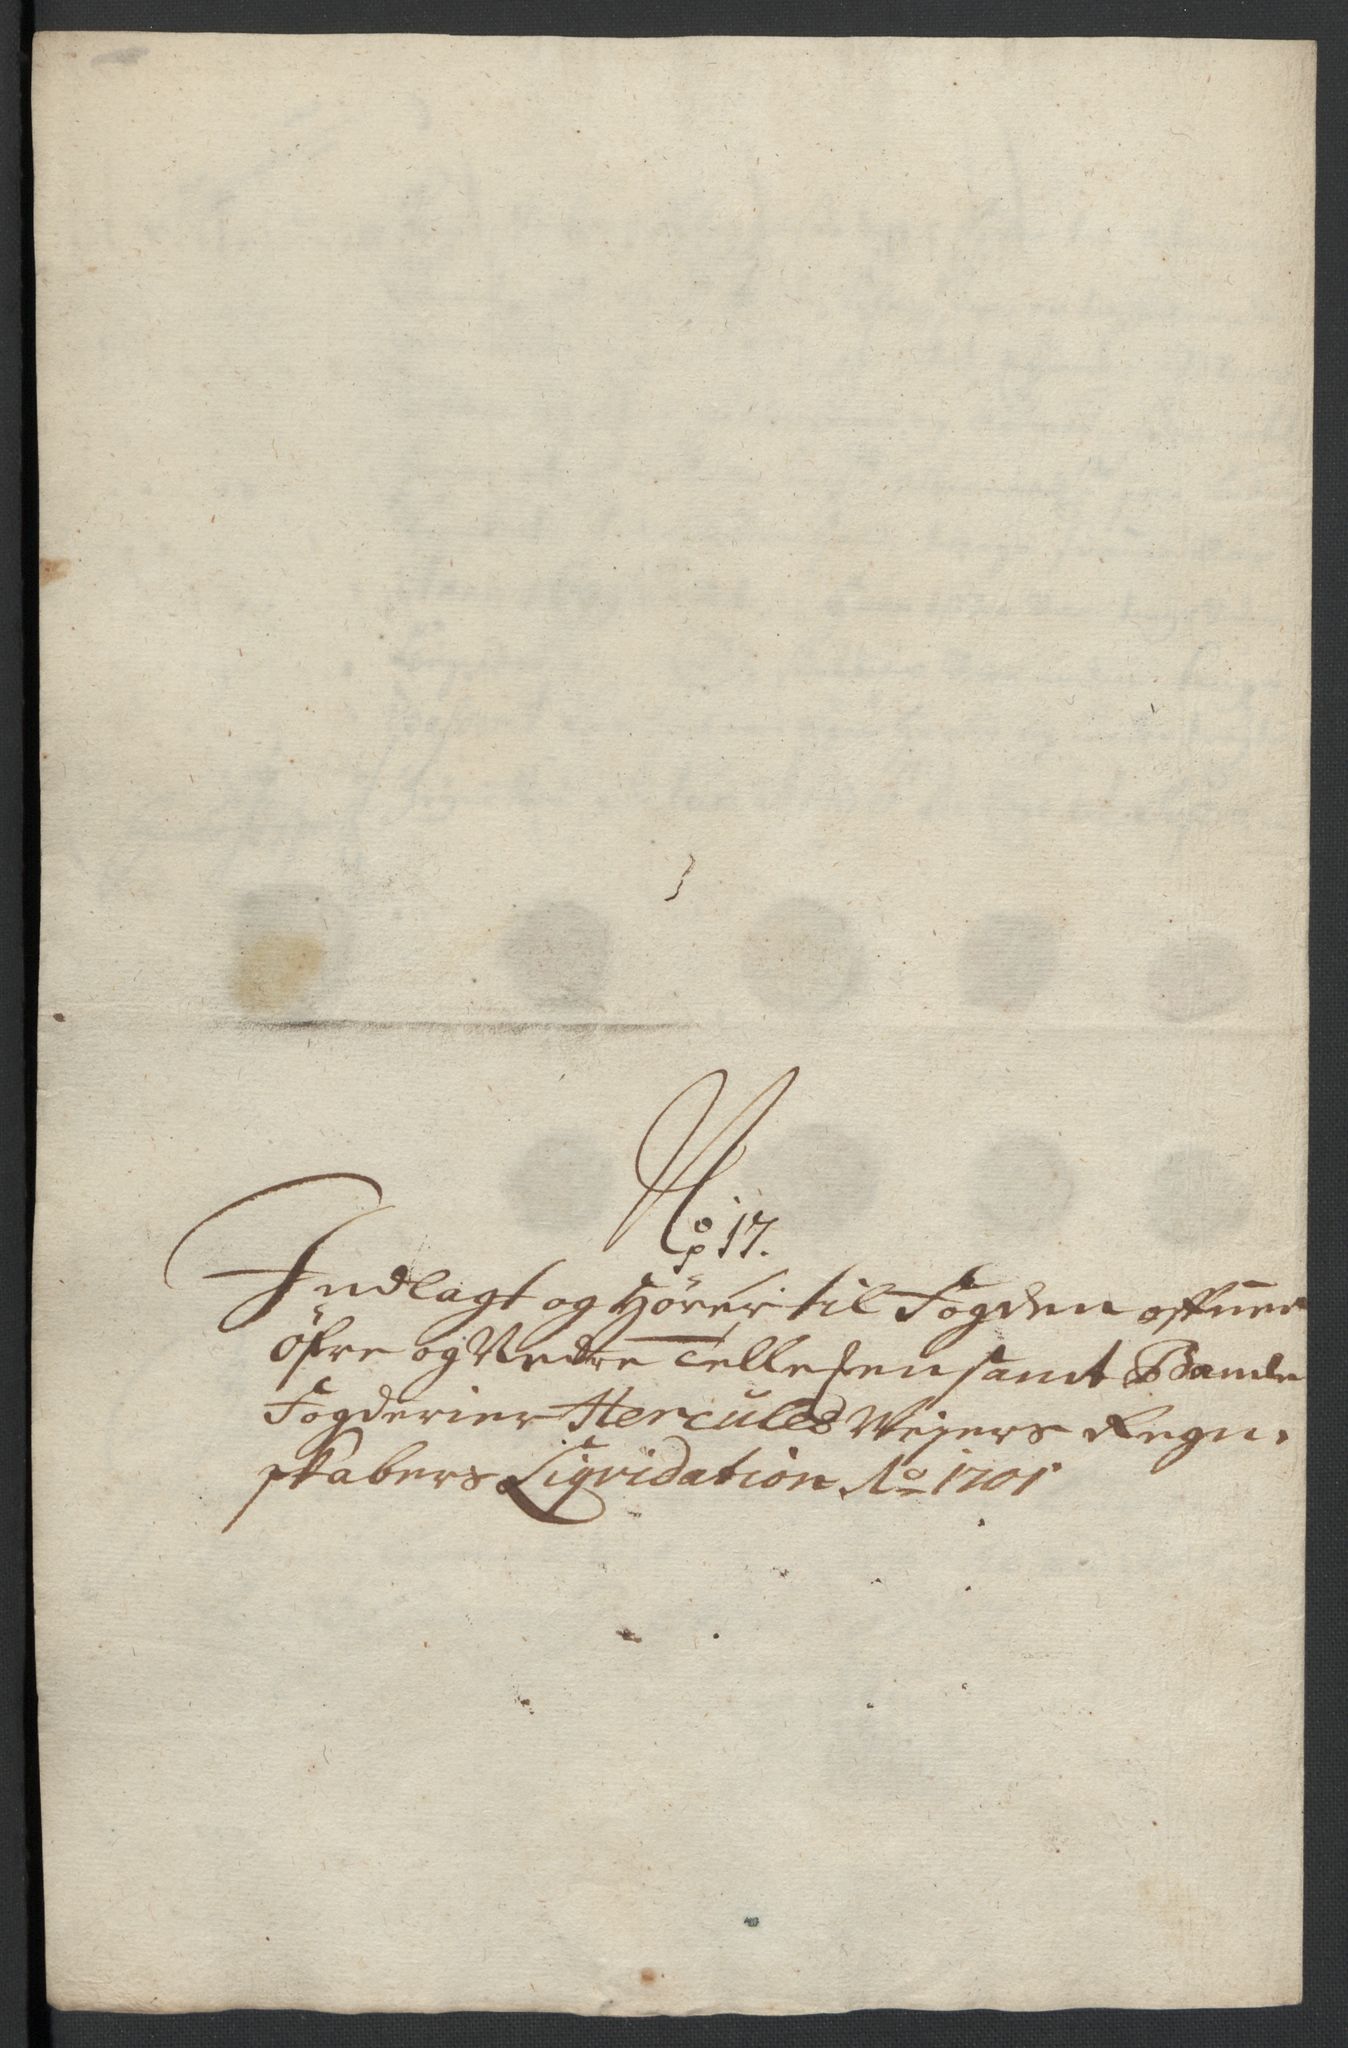 No 17.
Indlagt og Hörer til Fogden offuer
öfre og Nedre Tellefen samt Bamle
Fogderier Hercules Weÿers Regn-
skabers Liqvidation Ao 1701